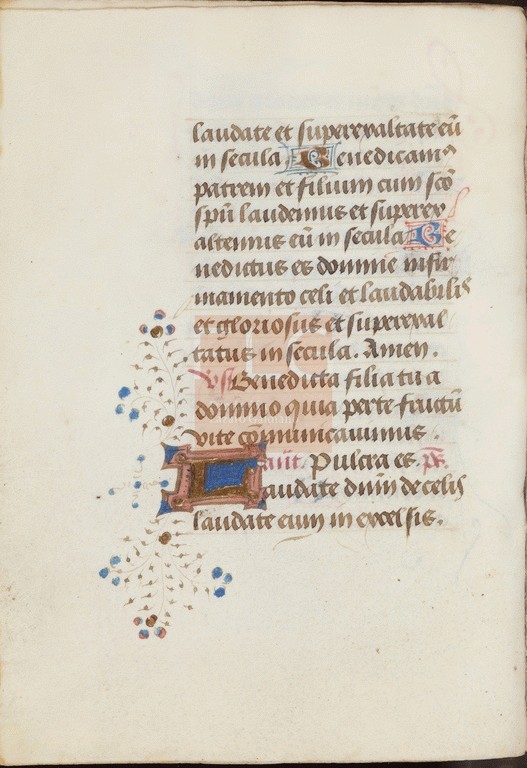 laudate et superexaltate eū
in secula Benedicamꝰ
patrem et filium cum scō
spū laudemus et superex
altemus eū in secula Be
nedictus es domine in fir
mamento celi et laudabilis
et gloriosus et superexal
tatus in secula. Amen.
Benedicta filia tu a
domino quia per te fructū
vite comunicauimus.
Pulcra es. ps̄.
Laudate dnm de celis
laudate eum in excelsis.